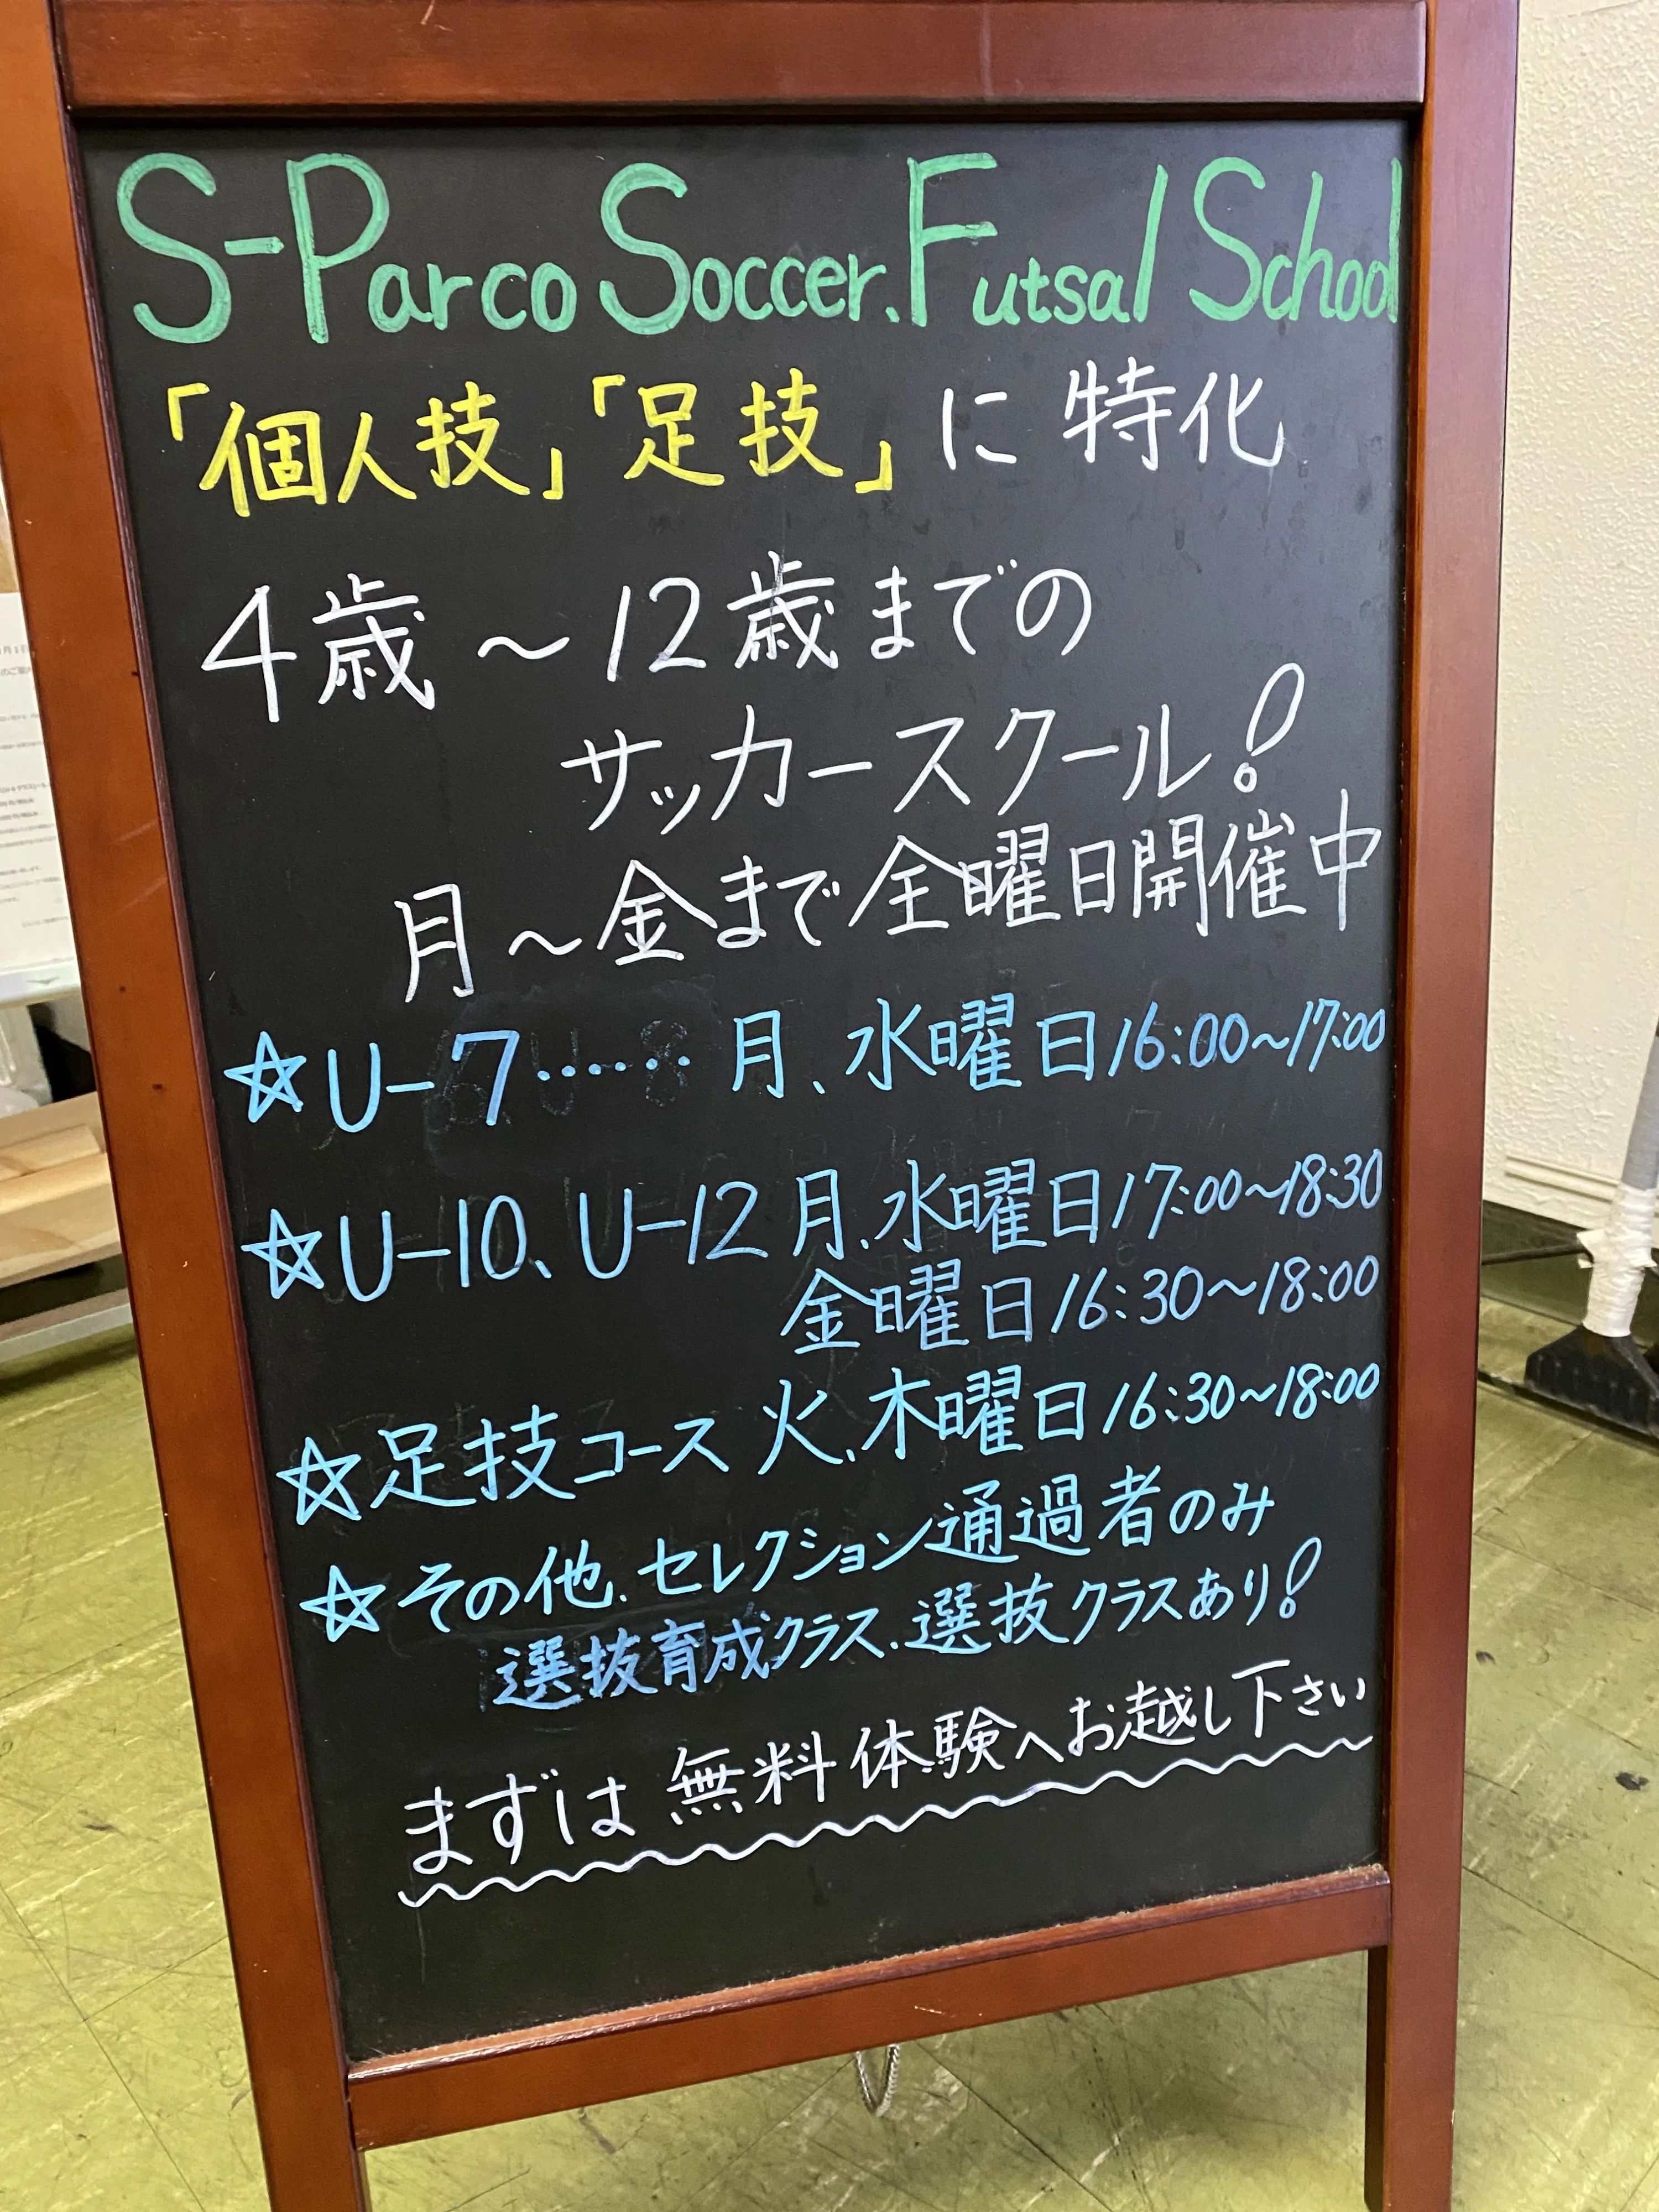 S-Parco Soccer.Futsal School
「個人技」「足技」に特化
4歳～12歳までの
サッカースクール!
月～金まで全曜日開催中
☆U-7……月、水曜日16:00～17:00
☆U-10、U-12 月、水曜日17:00～18:30
金曜日16:30～18:00
☆足技コース 火、木曜日16:30～18:00
☆その他、セレクション通過者のみ
選抜育成クラス、選抜クラスあり!
まずは無料体験へお越し下さい